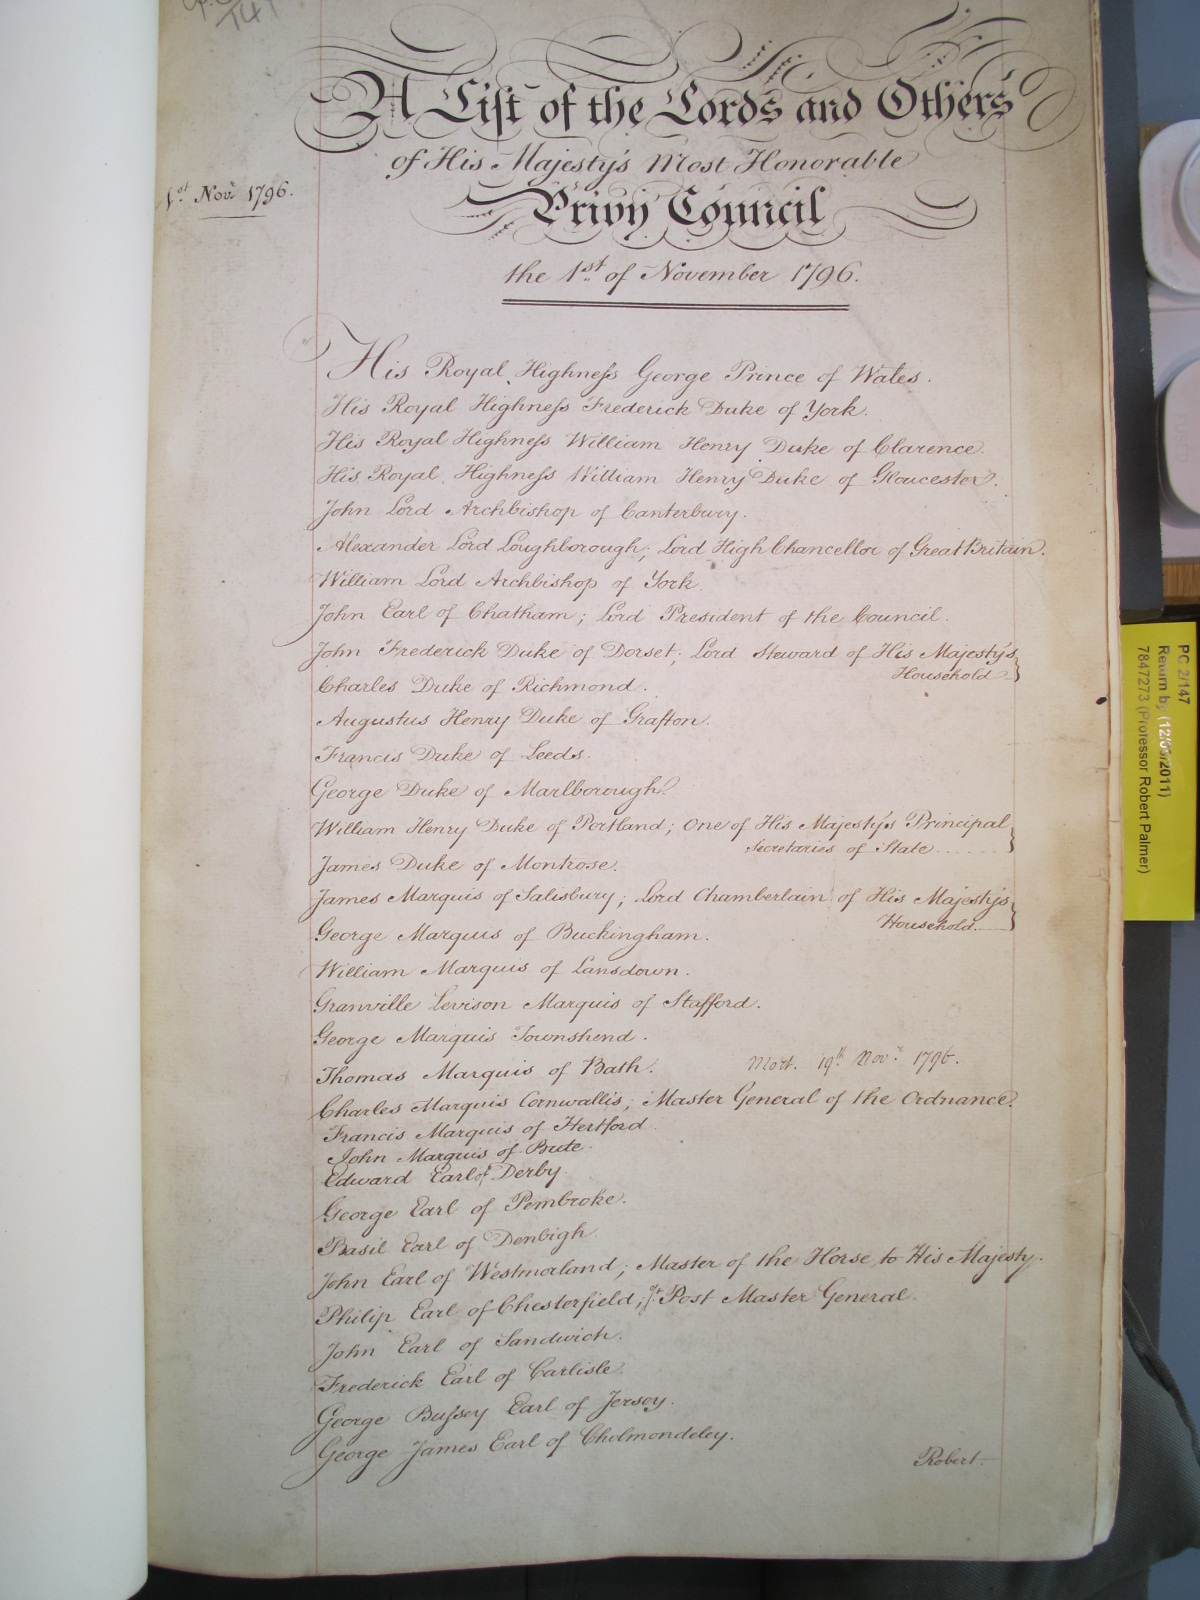 147
A List of the Lords and Others
of His Majesty's Most Honorable
1st Novr 1796.
Privy Council
the 1st of November 1796.
His Royal Highness George Prince of Wales.
His Royal Highness Frederick Duke of York.
His Royal Highness William Henry Duke of Clarence.
His Royal Highness William Henry Duke of Gloucester.
John Lord Archbishop of Canterbury.
Alexander Lord Loughborough; Lord High Chancellor of Great Britain.
William Lord Archbishop of York.
John Earl of Chatham; Lord President of the Council.
John Frederick Duke of Dorset; Lord Steward of His Majesty's
Household
Charles Duke of Richmond.
Augustus Henry Duke of Grafton.
Francis Duke of Leeds.
George Duke of Marlborough.
William Henry Duke of Portland; One of His Majesty's Principal
Secretaries of State
James Duke of Montrose.
James Marquis of Salisbury; Lord Chamberlain of His Majesty's
Household
George Marquis of Buckingham.
William Marquis of Lansdown.
Granville Levison Marquis of Stafford.
George Marquis Townshend.
Thomas Marquis of Bath. Mort. 19th Novr 1796.
Charles Marquis Cornwallis; Master General of the Ordnance.
Francis Marquis of Hertford.
John Marquis of Bute.
Edward Earl of Derby.
George Earl of Pembroke.
Basil Earl of Denbigh.
John Earl of Westmorland; Master of the Horse to His Majesty.
Philip Earl of Chesterfield; Post Master General.
John Earl of Sandwich.
Frederick Earl of Carlisle.
George Bussey Earl of Jersey.
George James Earl of Cholmondeley.
Robert
PC 2/147
Return by (12/2011)
7847273 (Professor Robert Palmer)